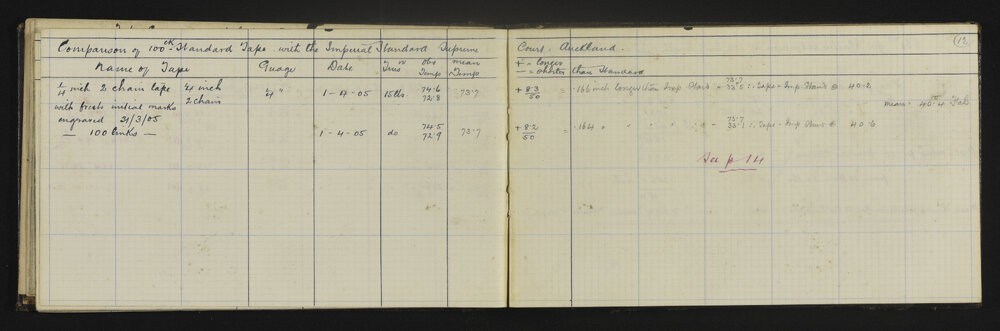 Comparison of 100ft Standard Tape with the Imperial Standard Supreme Court Auckland.
(12)
Name of Tape Guage Date Tens^n obs Temp mean Temp
+ = longer
- = shorter than Standard
1/4 inch 2 chain tape 1/4 inch 1/4" 1-4-05 15lbs 74.6 73.7 + 8.3 = .166 inch longer than Imp Stand 73.7
2 chain 72.8 50 ∴ Tape = Imp Stand @ 40.2
with fresh initial marks mean = 40.4 Fah
engraved 31/3/05
— 100 links — 1-4-05 do 74.5 73.7 + 8.2 = .164 " " " " " 73.7
72.9 50 33.1 ∴ Tape = Imp Stand @ 40.6
See p 14